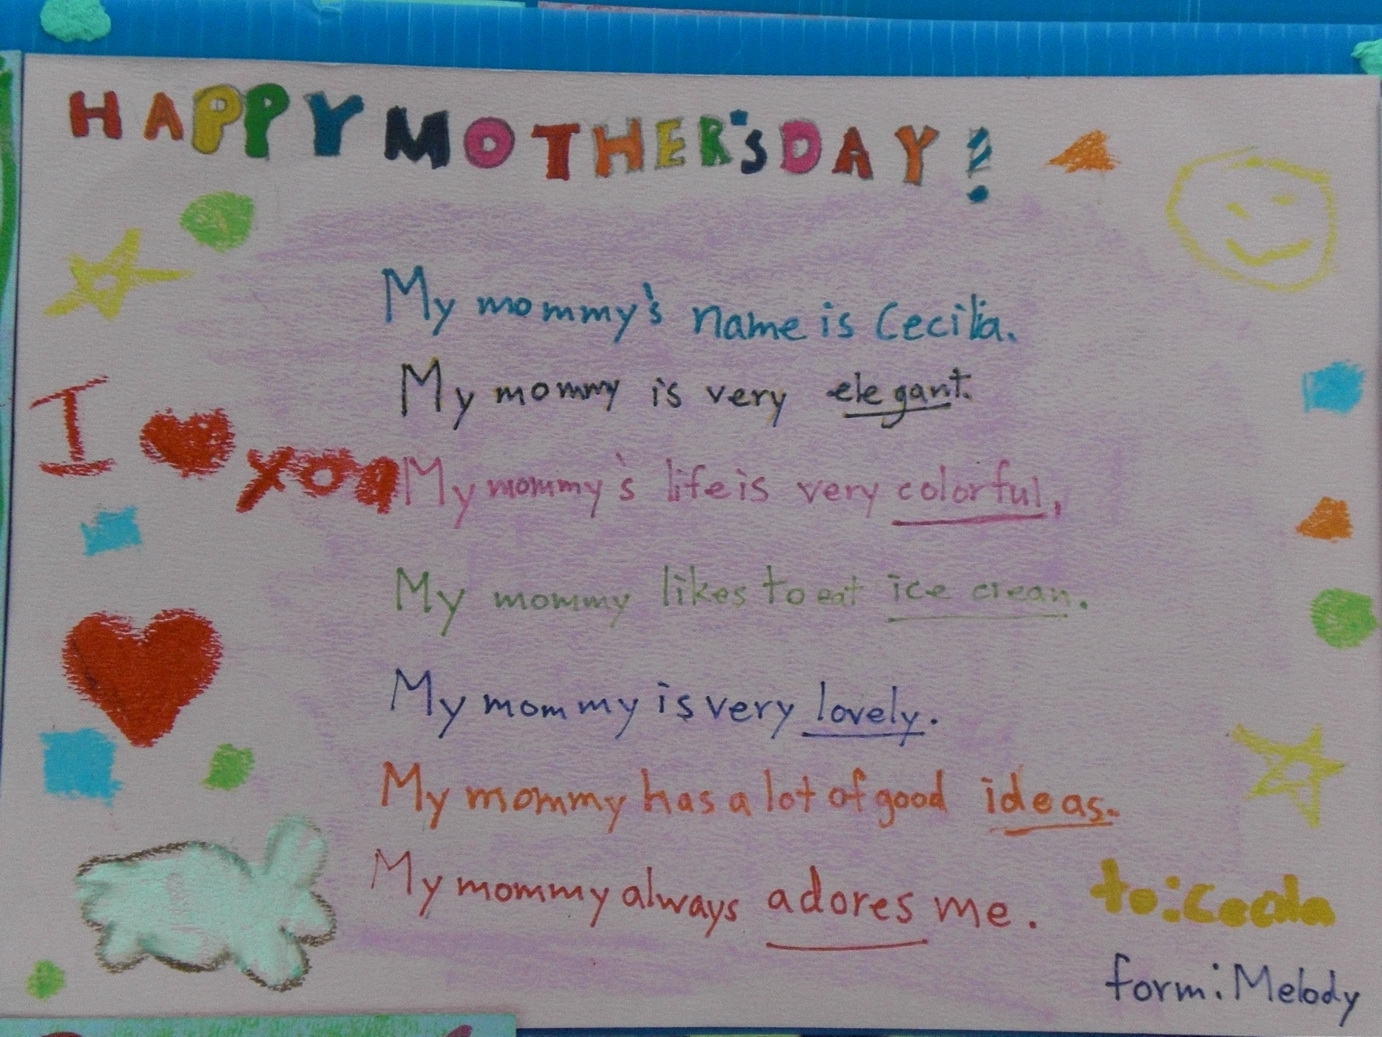 HAPPY MOTHER'S DAY!
My mommy's name is Cecilia.
My mommy is very elegant.
I ♥ you
My mommy's life is very colorful,
My mommy likes to eat ice crean.
My mommy is very lovely.
My mommy has a lot of good ideas.
My mommy always adores me.
to:Cecilia
form:Melody